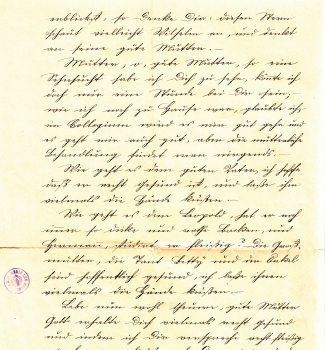 erblickst, so denke Dir: diesen Stern
schaut vielleicht Wilhelm an, und denkt
an seine gute Mutter. –
Mutter, o, gute Mutter, so eine
Sehnsucht habe ich Dich zu sehen, könnte ich
doch nur eine Stunde bei Dir sein, –
wie ich noch zu Hause war, glaubte ich,
im Collegium wird es mir gut gehn und
es geht mir auch gut, aber die mütterliche
Behandlung findet man nirgends. –
Wie geht es dem guten Vater, ich hoffe
daß er recht gesund ist, und lasse ihm
vielmals die Hände küssen. –
Wie geht es dem Leopold, hat er noch
immer so dicke und rothe Backen, und
Herrman, studirt er fleissig? Die Groß-
mutter, die Tant Betti und der Onkel
sind hoffentlich gesund, ich lasse ihnen
vielmals die Hände küssen. –
Lebe nun wohl theuere, gute Mutter
Gott erhalte Dich vielmals recht gesund
und indem ich Dir verspreche recht fleißig